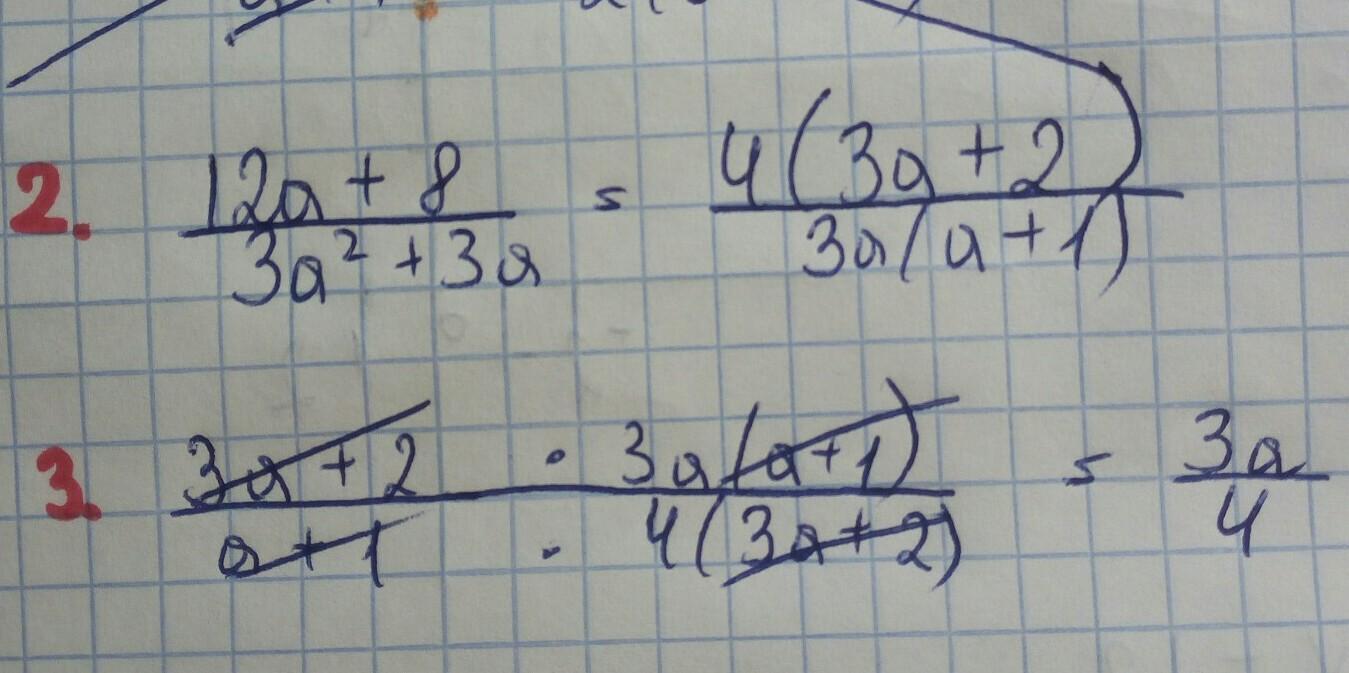 2. (12a + 8)/(3a² + 3a) = 4(3a + 2)/3a(a + 1)
3. (3a + 2 · 3a(a + 1))/(a + 1 · 4(3a + 2)) = 3a/4